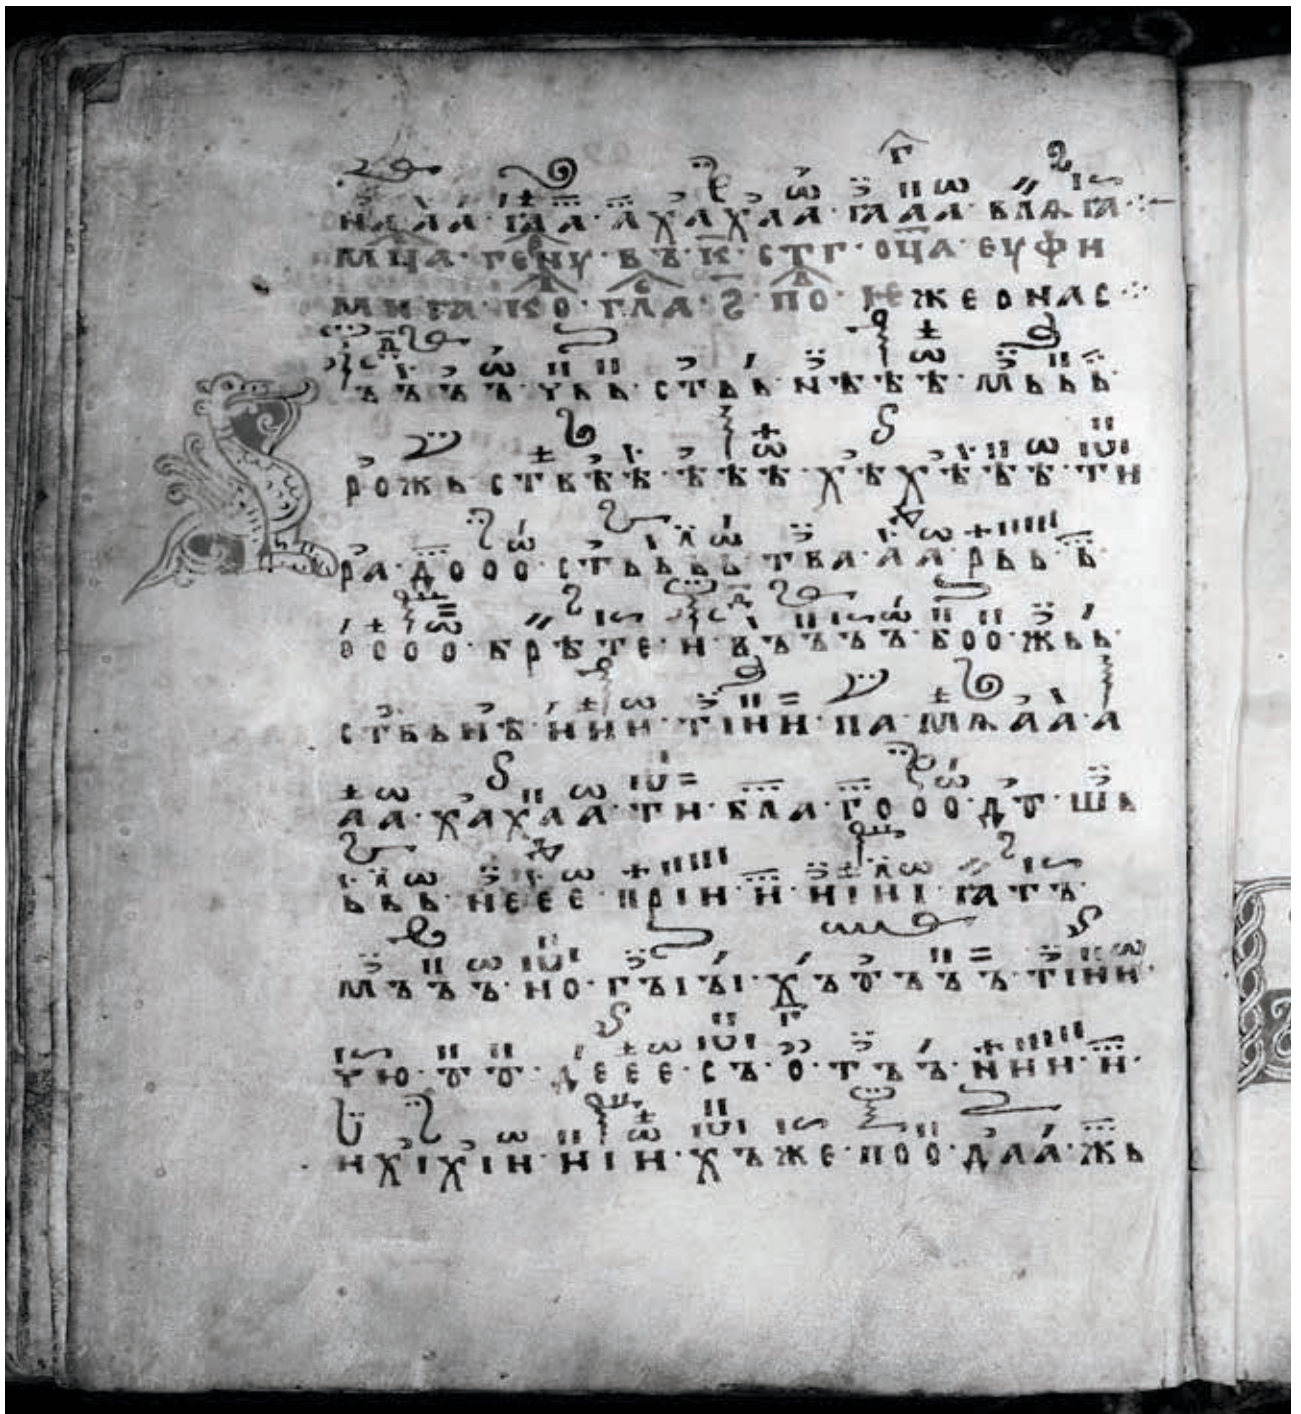 НЄЛА · ГАА · АХАХАА · ГАААА · ВЛѦГА ·:·
МЦА · ГЕНУ · ВЪ · К · СТГ · ОЦА · ЕУФИ
МИꙖ · КО · ГЛА · Ѕ · ПО · ѤЖЕОНАС ·:·
ЪЪЪЪ · УЬЬ · СТЬЬ · НѢѢѢ · МЬЬЬ ·
РОЖЬСТВѢѢ · ѢѢѢ · ХѢХѢѢѢ · ТИ
РА · ДООО · СТЬЬЬЬ · ТВА · АА · РЬЬ · Ь ·
ОООО · БРѢТЕ · НЪЪЪЪЪ · БОО · ЖЬЬ ·
СТВЬНѢ · ИНИ · ТІИИ · ПА · МѦАА · А
АА · ХАХАА · ТИ · БЛА · ГООО · ДОУ · ШЬ
ЬЬЬ · НЕЕЕ · ПРІИ · И · ИІНІ · ꙖТЪ ·
МЪЪЪ · НО · ГЪІЪІ · ХЪОЪЪЪ · ТІИИ ·
ТЮ · ОУОУ · ДЕЕЕ · СЪ · О · ТЪЪ · ИИИ · И ·
ИХІХІИ · НІИ · ХЪЖЕ · ПОО · ДАА · ЖЬ